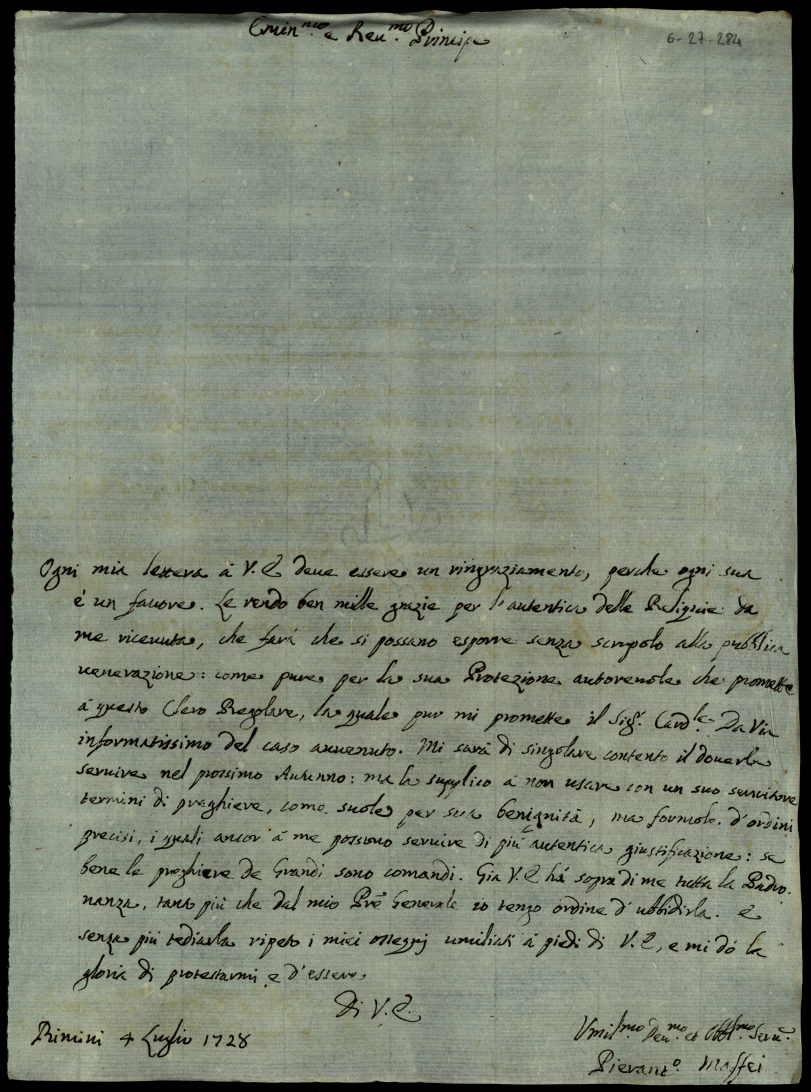 6-27-284
Emin.mo e Reu.mo Principe
Ogni mia lettera à V. E deue essere un ringraziamento, perche ogni sua
è un fauore. Le rendo ben mille grazie per l'autentica delle Reliquie da
me riceuuta, che farà che si possano esporre senza scrupolo alla pubblica
uenerazione: come pure per la sua Protezione autoreuole che promette
à questo Clero Regolare, la quale pur mi promette il Sig.r Card.le Da Via
informatissimo del caso auuenuto. Mi sarà di singolare contento il douerla
seruire nel prossimo Autunno: ma la supplico a non usare con un suo seruitore
termini di preghiere, come suole per sua benignità, ma formole d'ordini
precisi, i quali ancor à me possono seruire di più autentica giustificazione: se
bene le preghiere de Grandi sono comandi. Gia V. E hà sopra di me tutta la Padro-
nanza, tanto più che dal mio Pre Generale io tengo ordine d'ubbidirla. E
senza più tediarla ripeto i miei ossequij umiliati à piedi di V. E, e mi dò la
gloria di protestarmi e d'essere
Di V. E.
Rimini 4 Luglio 1728
Umil.mo Deu.mo et Obbl.mo Seru.e
Pierant.o Maffei